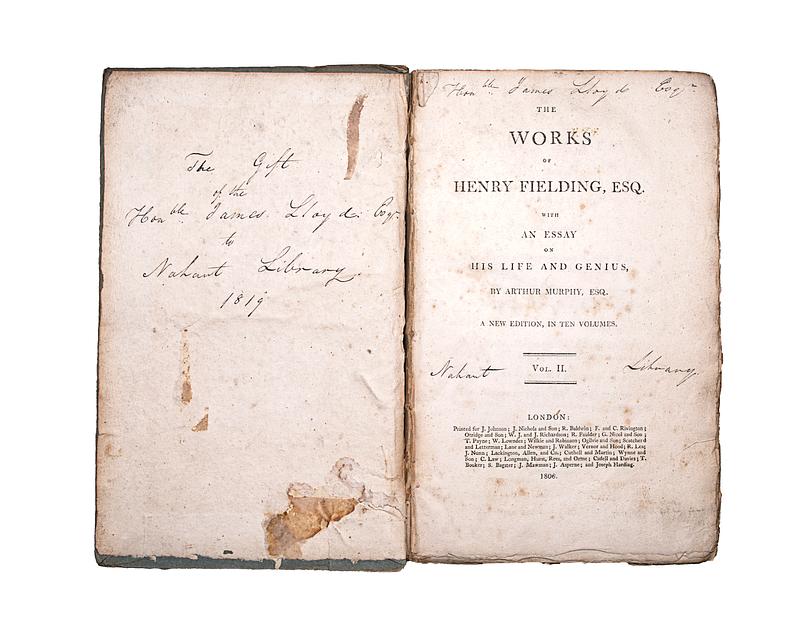 The Gift
of the
Honble James Lloyd Esqr
to
Nahant Library
1819
Honble James Lloyd Esqr
THE
WORKS
OF
HENRY FIELDING, ESQ.
WITH
AN ESSAY
ON
HIS LIFE AND GENIUS,
BY ARTHUR MURPHY, ESQ.
A NEW EDITION, IN TEN VOLUMES.
Nahant VOL. II. Library
LONDON:
Printed for J. Johnson; J. Nichols and Son; R. Baldwin; F. and C. Rivington;
Otridge and Son; W. J. and J. Richardson; R. Faulder; G. Nicol and Son;
T. Payne; W. Lowndes; Wilkie and Robinson; Ogilvie and Son; Scatcherd
and Letterman; Lane and Newman; J. Walker; Vernor and Hood; R. Lea;
J. Nunn; Lackington, Allen, and Co.; Cuthell and Martin; Wynne and
Son; C. Law; Longman, Hurst, Rees, and Orme; Cadell and Davies; T.
Booker; S. Bagster; J. Mawman; J. Asperne; and Joseph Harding.
1806.